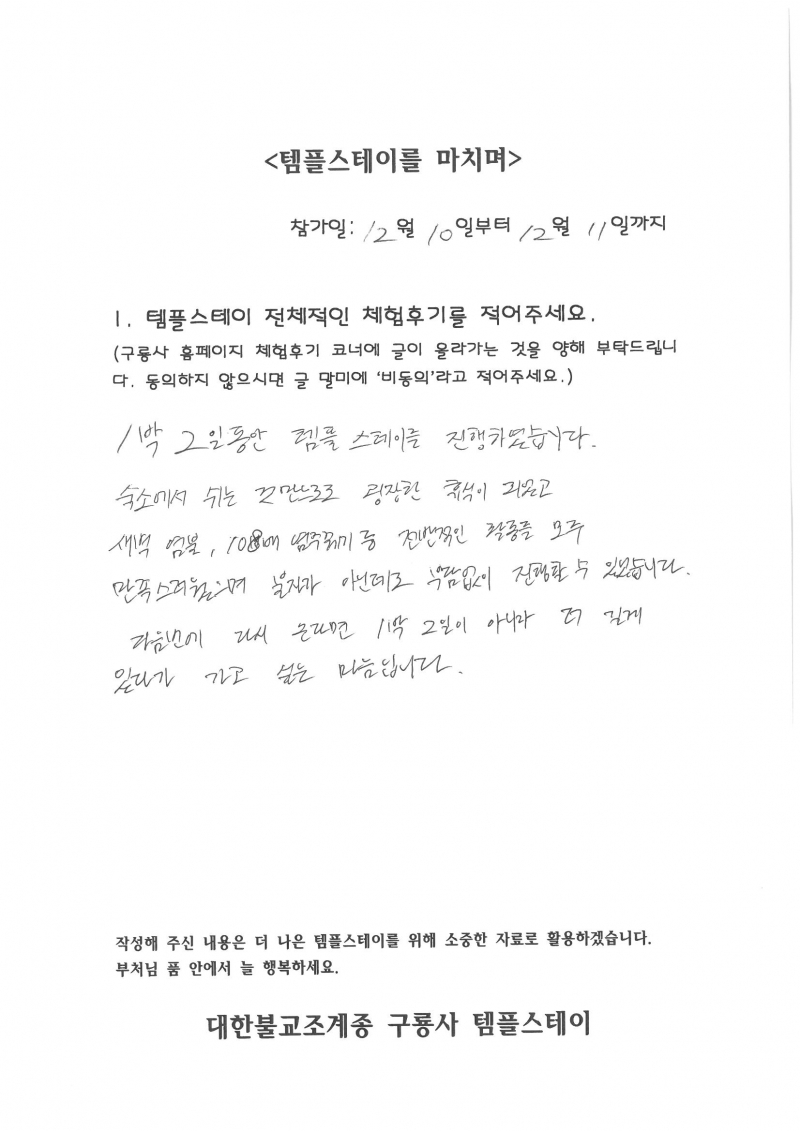 <템플스테이를 마치며>
참가일: 12월 10일부터 12월 11일까지
1. 템플스테이 전체적인 체험후기를 적어주세요.
(구룡사 홈페이지 체험후기 코너에 글이 올라가는 것을 양해 부탁드립니
다. 동의하지 않으시면 글 말미에 '비동의'라고 적어주세요.)
1박 2일동안 템플 스테이를 진행하였습니다.
숙소에서 쉬는 것만으로도 굉장한 휴식이 되었고
새벽 염불, 108배 염주꿰기 등 전반적인 활동을 모두
만족스러웠으며 불자가 아닌데도 부담없이 진행할 수 있었습니다.
다음번에 다시 온다면 1박 2일이 아니라 더 길게
있다가 가고 싶은 마음입니다.
작성해 주신 내용은 더 나은 템플스테이를 위해 소중한 자료로 활용하겠습니다.
부처님 품 안에서 늘 행복하세요.
대한불교조계종 구룡사 템플스테이